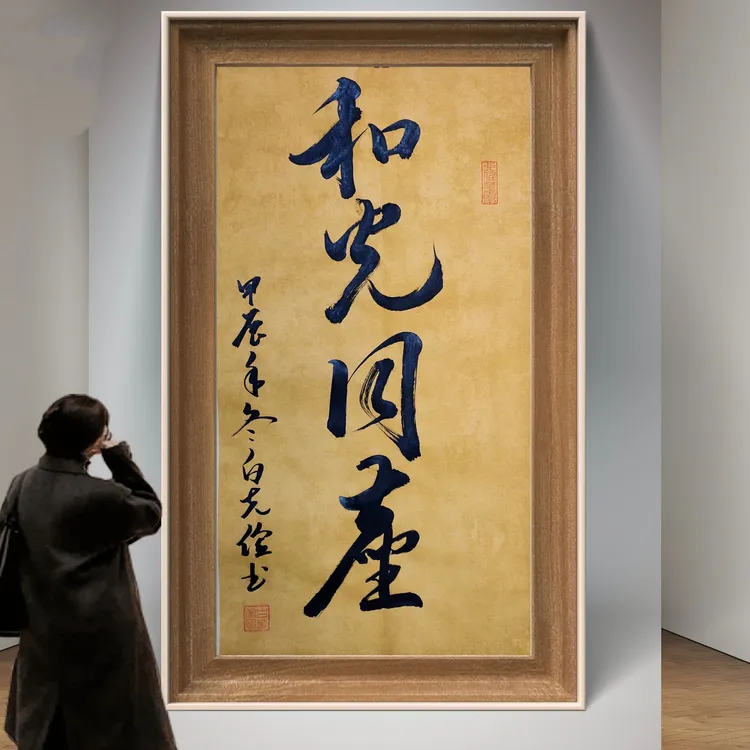 和光同塵
甲辰年冬白克俭书